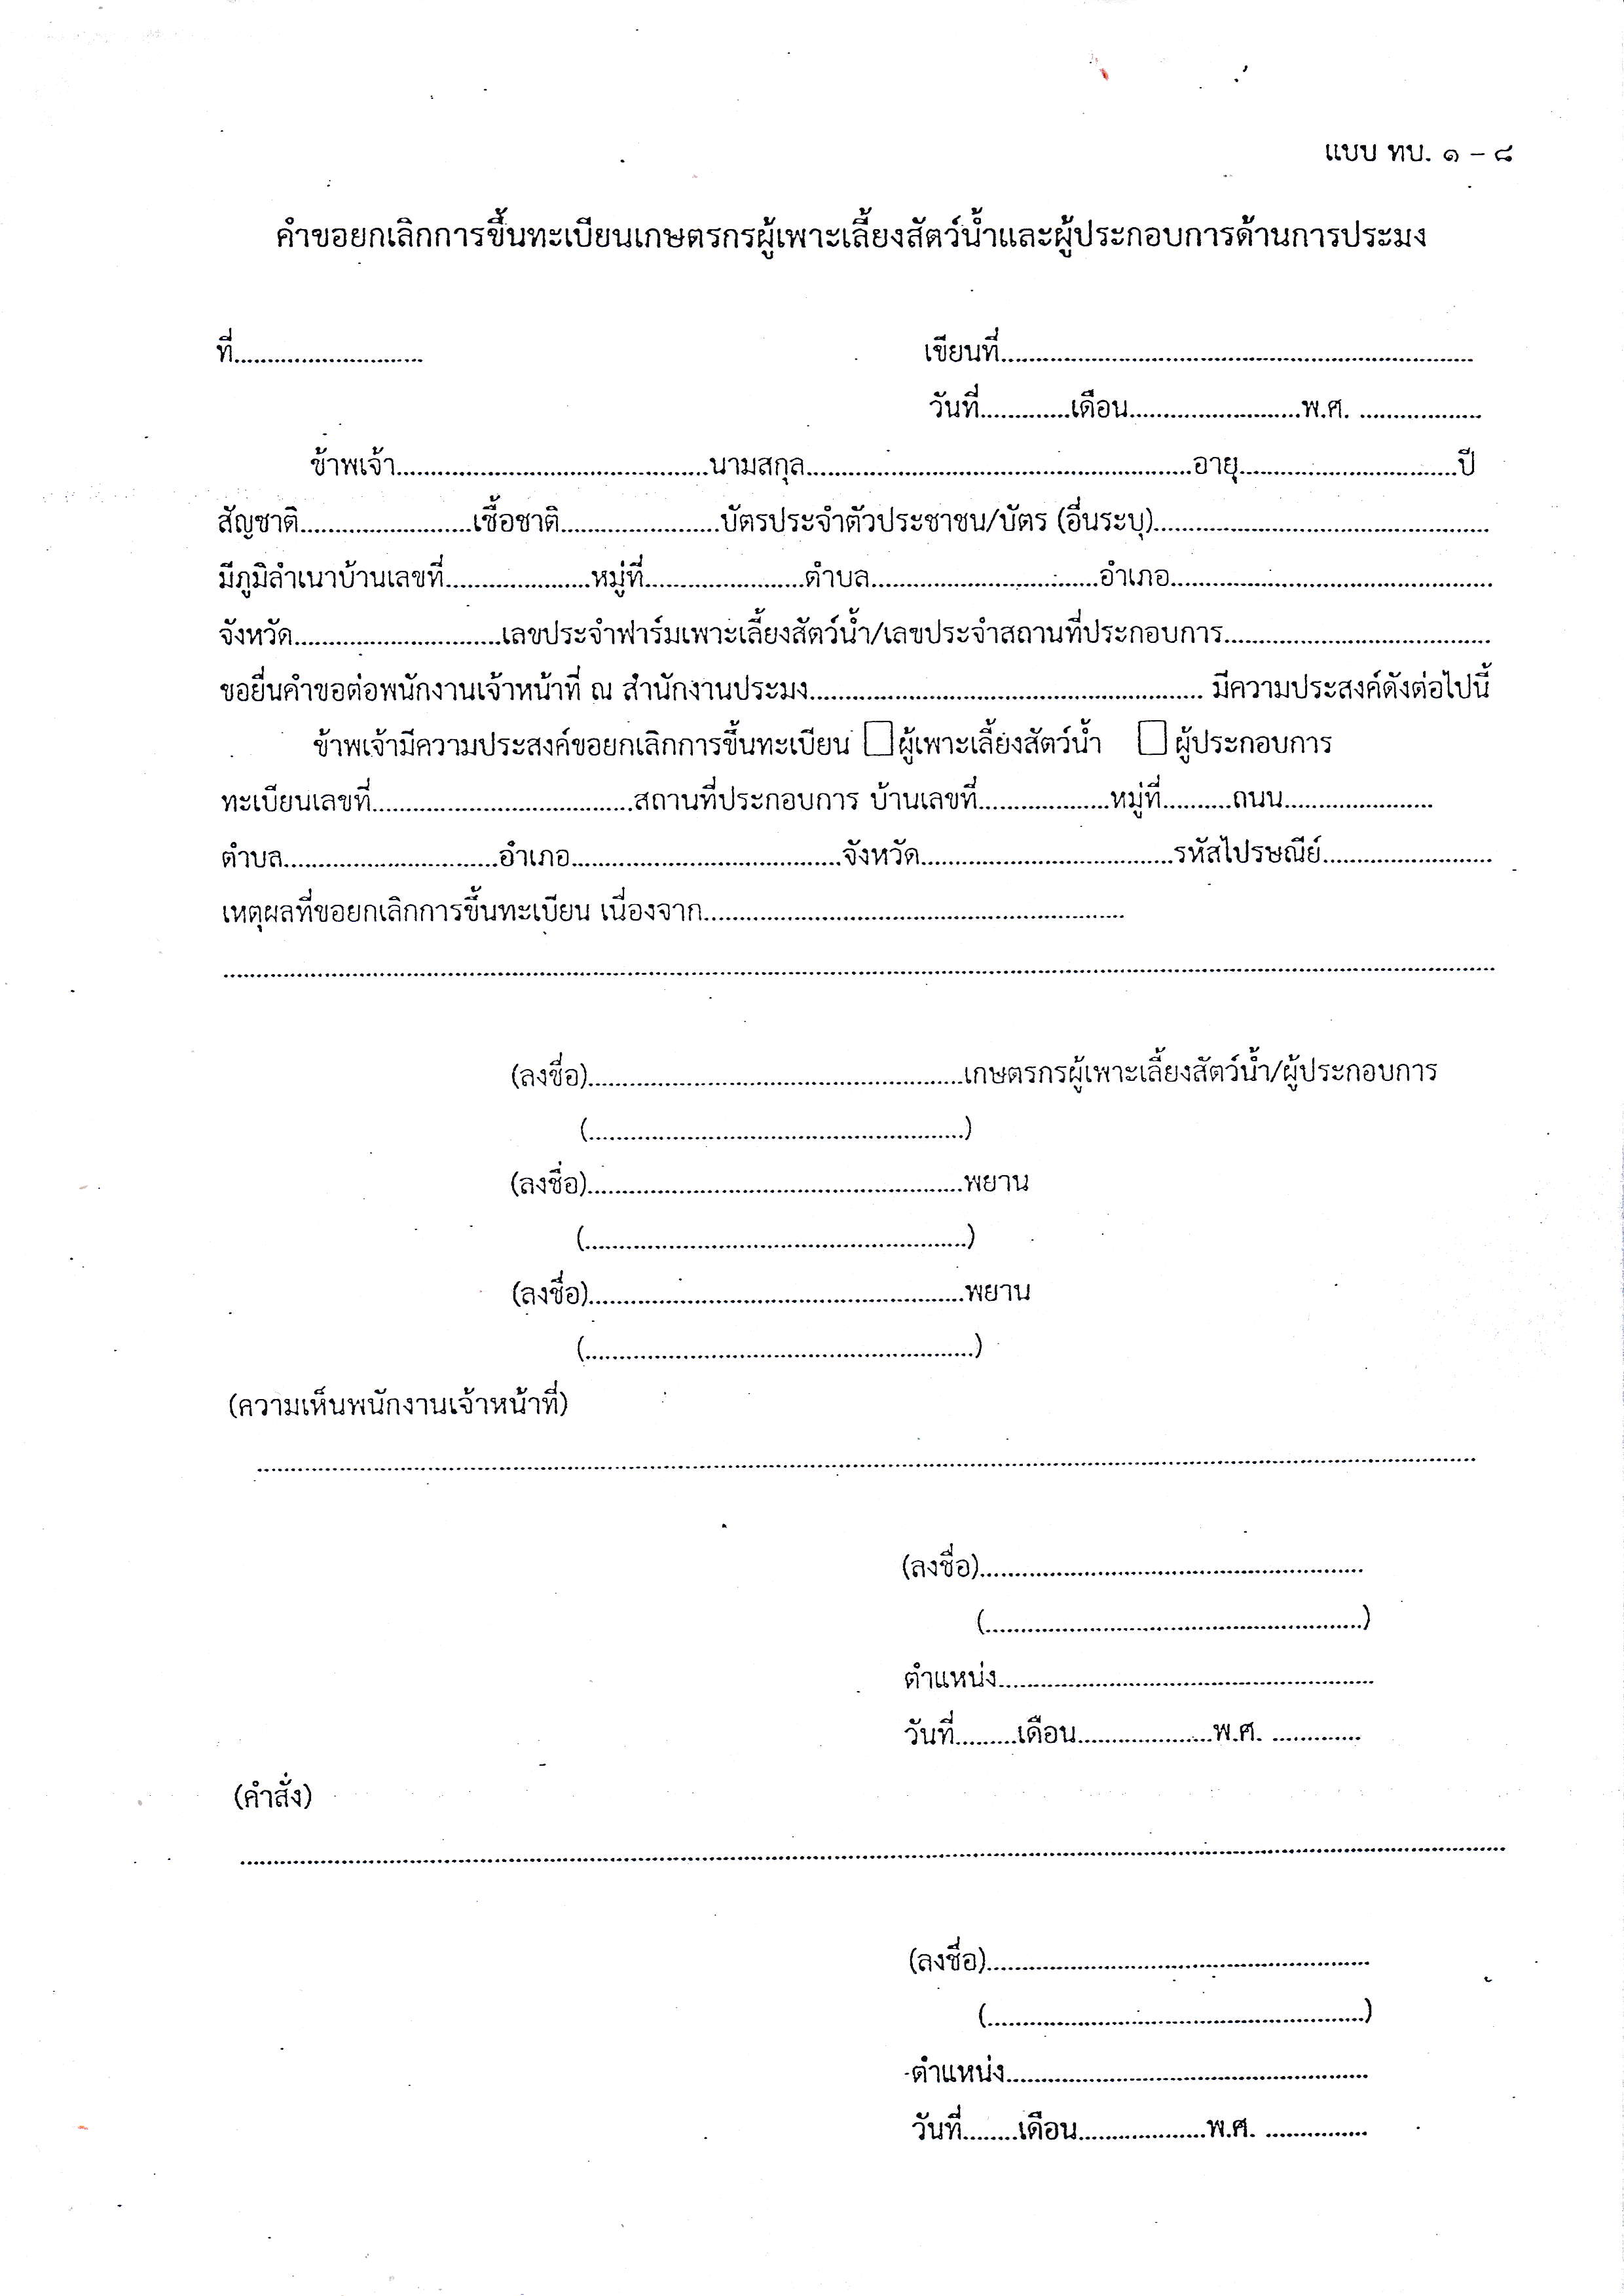 แบบ ทบ. ๑ – ๘
คำขอยกเลิกการขึ้นทะเบียนเกษตรกรผู้เพาะเลี้ยงสัตว์น้ำและผู้ประกอบการด้านการประมง
ที่............................ เขียนที่......................................................................
วันที่.............เดือน.........................พ.ศ. ..................
ข้าพเจ้า..............................................นามสกุล.........................................................อายุ................................ปี
สัญชาติ.........................เชื้อชาติ.......................บัตรประจำตัวประชาชน/บัตร (อื่นระบุ)..................................................
มีภูมิลำเนาบ้านเลขที่.....................หมู่ที่.......................ตำบล.................................อำเภอ................................................
จังหวัด..............................เลขประจำฟาร์มเพาะเลี้ยงสัตว์น้ำ/เลขประจำสถานที่ประกอบการ.......................................
ขอยื่นคำขอต่อพนักงานเจ้าหน้าที่ ณ สำนักงานประมง.......................................................... มีความประสงค์ดังต่อไปนี้
ข้าพเจ้ามีความประสงค์ขอยกเลิกการขึ้นทะเบียน ☐ผู้เพาะเลี้ยงสัตว์น้ำ ☐ ผู้ประกอบการ
ทะเบียนเลขที่......................................สถานที่ประกอบการ บ้านเลขที่...................หมู่ที่..........ถนน......................
ตำบล...............................อำเภอ........................................จังหวัด.....................................รหัสไปรษณีย์.........................
เหตุผลที่ขอยกเลิกการขึ้นทะเบียน เนื่องจาก..............................................................
............................................................................................................................................................................................
(ลงชื่อ).......................................................เกษตรกรผู้เพาะเลี้ยงสัตว์น้ำ/ผู้ประกอบการ
(.......................................................)
(ลงชื่อ).......................................................พยาน
(........................................................)
(ลงชื่อ).......................................................พยาน
(.........................................................)
(ความเห็นพนักงานเจ้าหน้าที่)
....................................................................................................................................................................................
(ลงชื่อ)........................................................
(.......................................................)
ตำแหน่ง.......................................................
วันที่.........เดือน....................พ.ศ. .............
(คำสั่ง)
............................................................................................................................................................................................
(ลงชื่อ)........................................................
(.......................................................)
ตำแหน่ง.....................................................
วันที่........เดือน...................พ.ศ. ...............